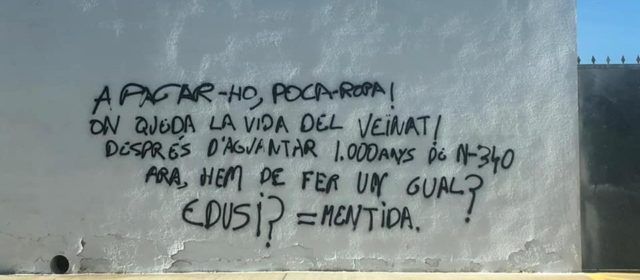 A PAGAR-HO, POCA-ROPA!
ON QUEDA LA VIDA DEL VEÏNAT!
DESPRÉS D'AGUANTAR 1.000 ANYS DE N-340
ARA, HEM DE FER UN GUAL?
EDUSI? = MENTIDA.